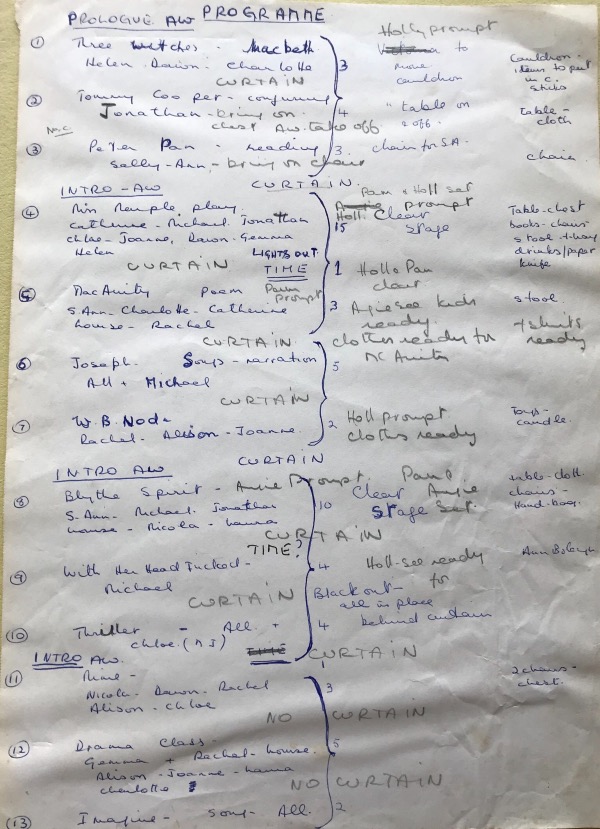 PROLOGUE AW PROGRAMME
Holly prompt
① Three witches - Macbeth 3 to Cauldron -
Helen - Dawn - Charlotte move items to put
CURTAIN cauldron in c.
② Tommy Cooper - conjuring 4 " table on table -
Jonathan - bring on 2 off. cloth
chest AW take off
③ Peter Pan - reading 3 chair for S.A. chair
Sally-Ann - bring on chair
INTRO - AW CURTAIN Pam & Holl set
④ play prompt Table - chest
Catherine - Michael Jonathan 15 Holl. Clear books - chairs
Chloe - Joanne, Dawn - Gemma Stage stool + tray
Helen LIGHTS OUT drinks/paper
CURTAIN TIME 1 Holl & Pam knife
clear
⑤ MacAvity Poem Pam prompt 3 Angie see kids stool
S. Ann - Charlotte - Catherine ready
Louise - Rachel
CURTAIN clothes ready for + shirts
⑥ Joseph - Songs - narration 5 McAvity ready
All + Michael
CURTAIN
⑦ W. B. Node 2 Holl prompt Toys -
Rachel - Alison - Joanne clothes ready candle
INTRO AW CURTAIN
⑧ Blythe Spirit - Angie Prompt. Pam & table - cloth
S. Ann - Michael - Jonathan 10 Clear Angie chairs -
Louise - Nicola - Laura Stage Set. Hand-bag
CURTAIN
TIME?
⑨ With Her Head Tucked - 4 Holl - see ready Ann Boleyn
Michael for
CURTAIN Blackout -
all in place
⑩ Thriller - All + 4 behind curtain
Chloe (MJ)
INTRO AW. TIME 1 CURTAIN
⑪ Mime - 3 2 chairs -
Nicola - Dawn - Rachel chest.
Alison - Chloe
NO CURTAIN
⑫ Drama Class - 5
Gemma + Rachel - Louise.
Alison - Joanne - Laura
Charlotte
NO CURTAIN
⑬ Imagine - Song - All. 2